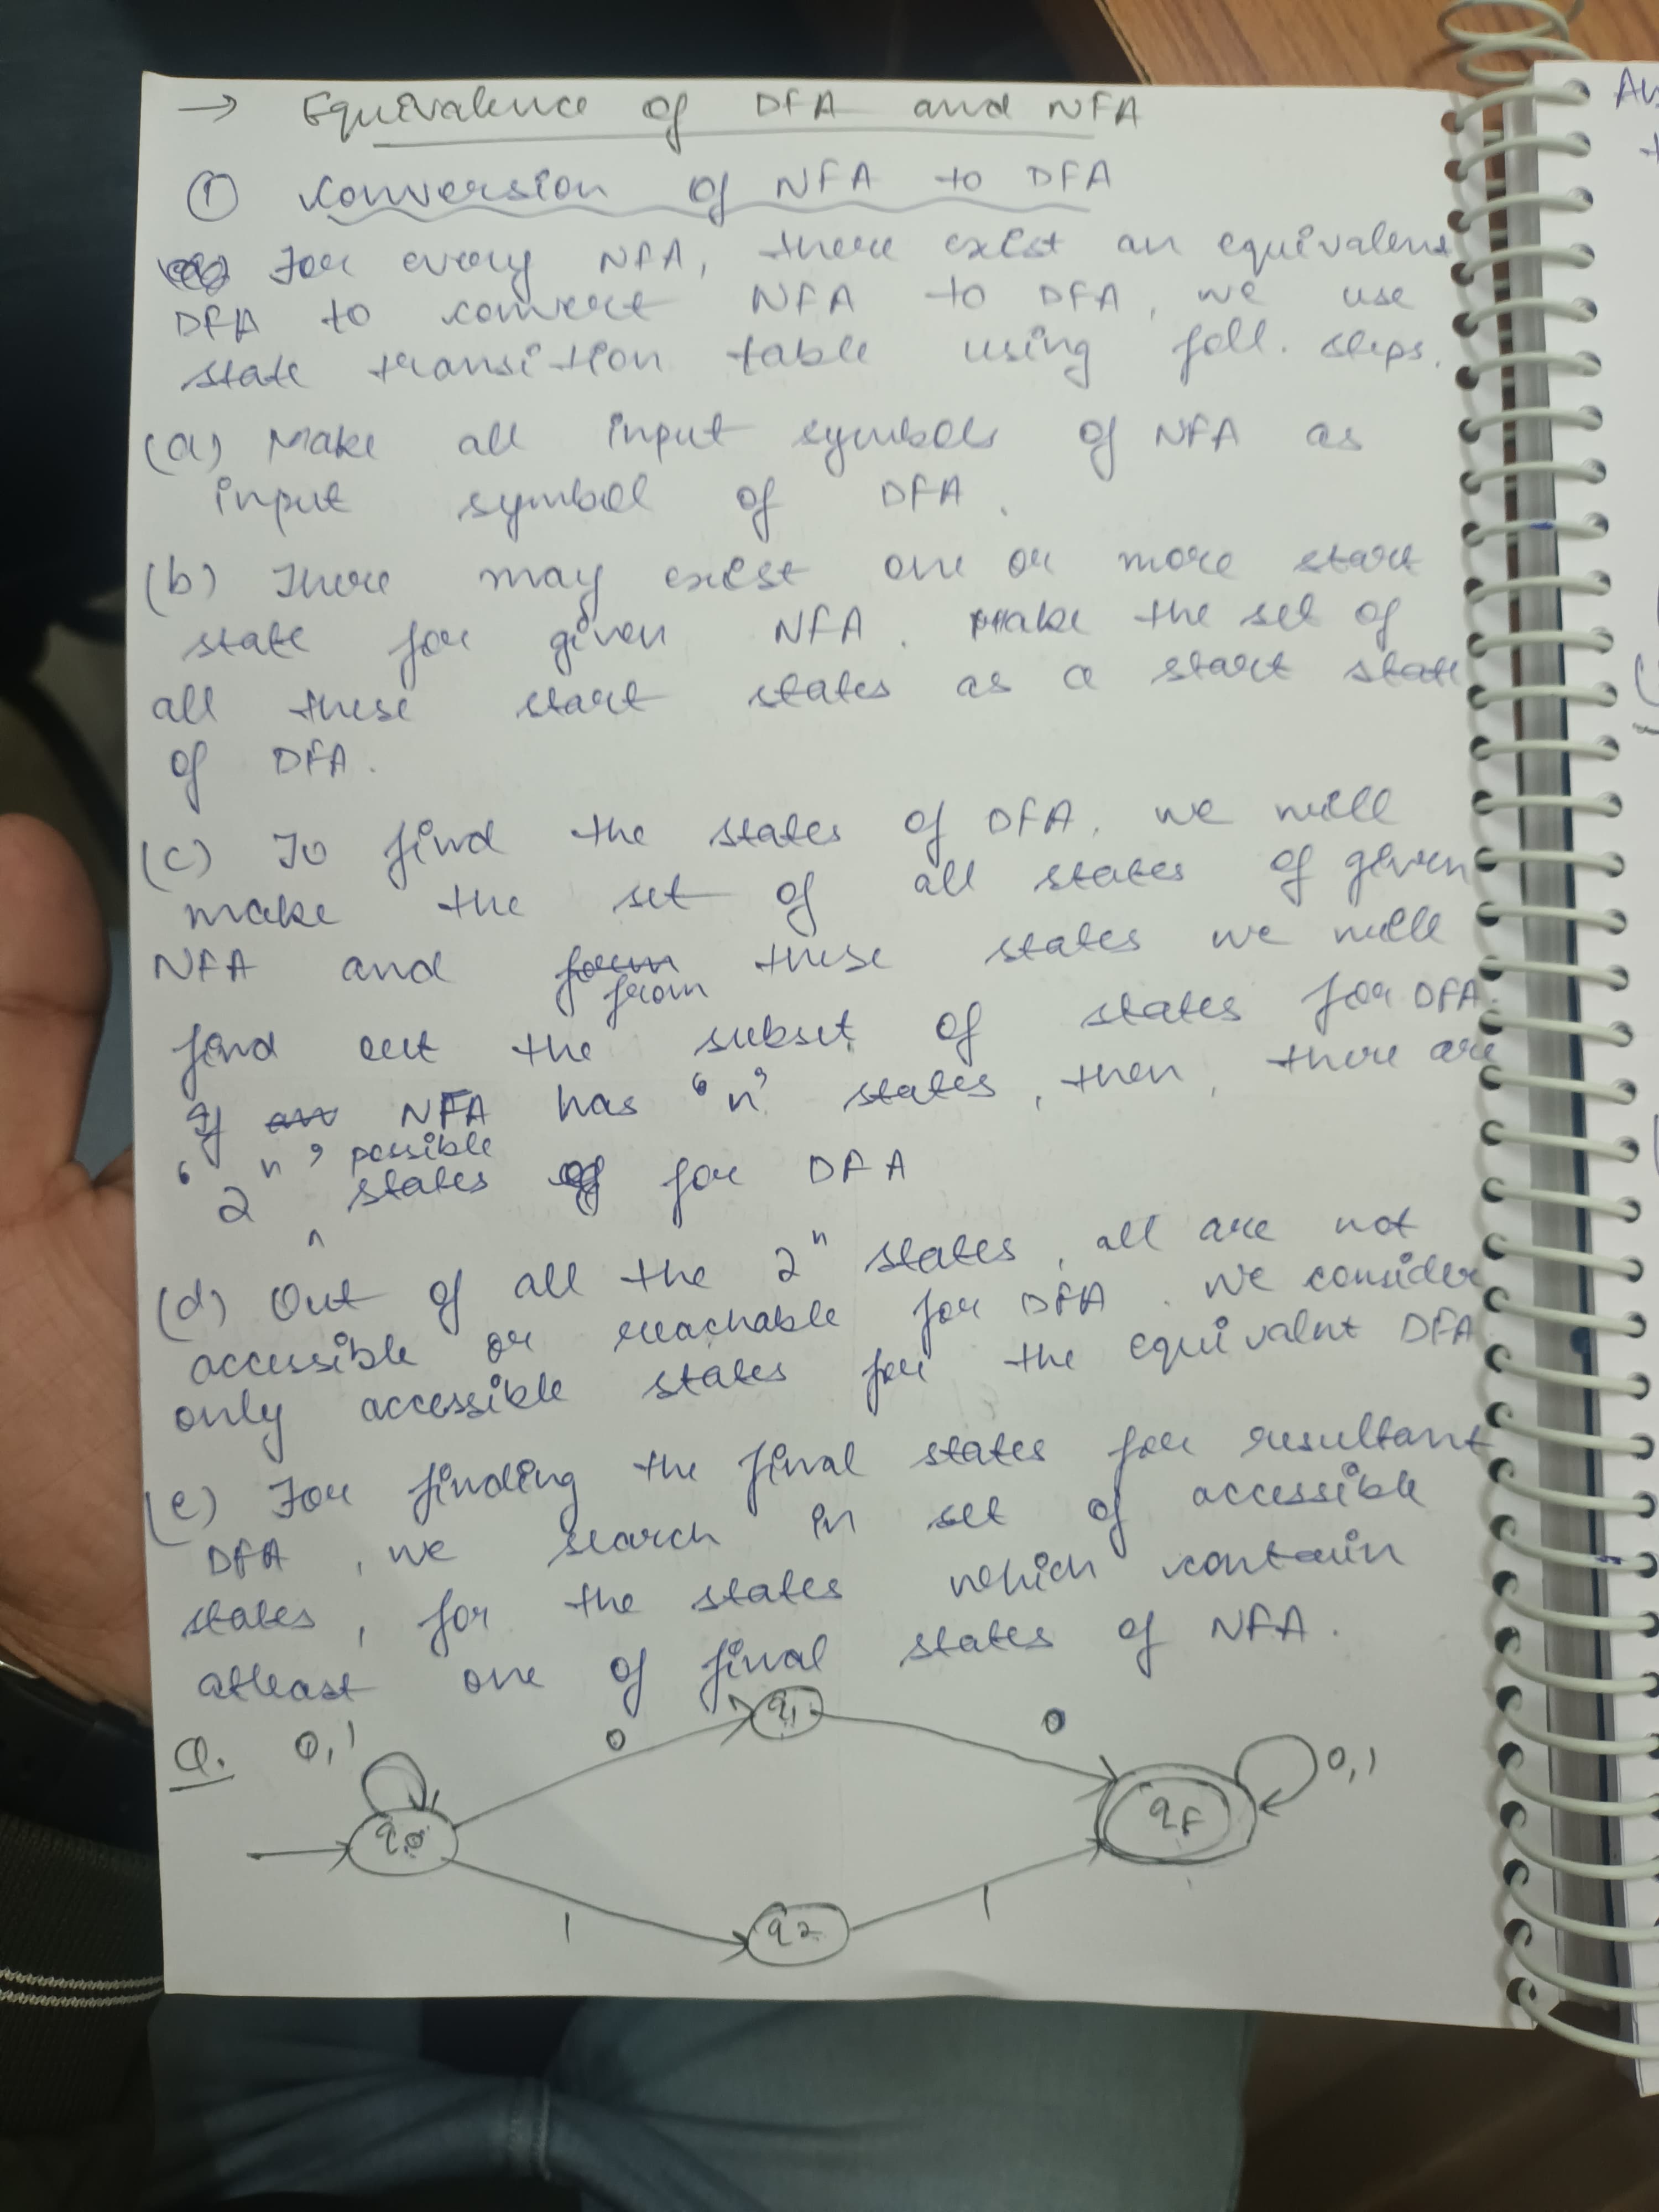 → Equivalence of DFA and NFA
① Conversion of NFA to DFA
For every NFA, there exist an equivalent
DFA to convert NFA to DFA, we use
state transition table using foll. steps.
(a) Make all input symbols of NFA as
input symbol of DFA.
(b) There may exist one or more start
state for given NFA. Make the set of
all these start states as a start state
of DFA.
(c) To find the states of DFA, we will
make the set of all states of given
NFA and from these states we will
find out the subset of states for DFA.
If NFA has 'n' states, then, there are
'2ⁿ' possible states for DFA
(d) Out of all the 2ⁿ states, all are not
accessible or reachable for DFA. We consider
only accessible states for the equivalnt DFA
(e) For finding the final states for resultant
DFA, we search in set of accessible
states, for the states which contain
atleast one of final states of NFA.
Q. 0,1 0 q₁ 0
q₀ qF 0,1
1 q₂ 1